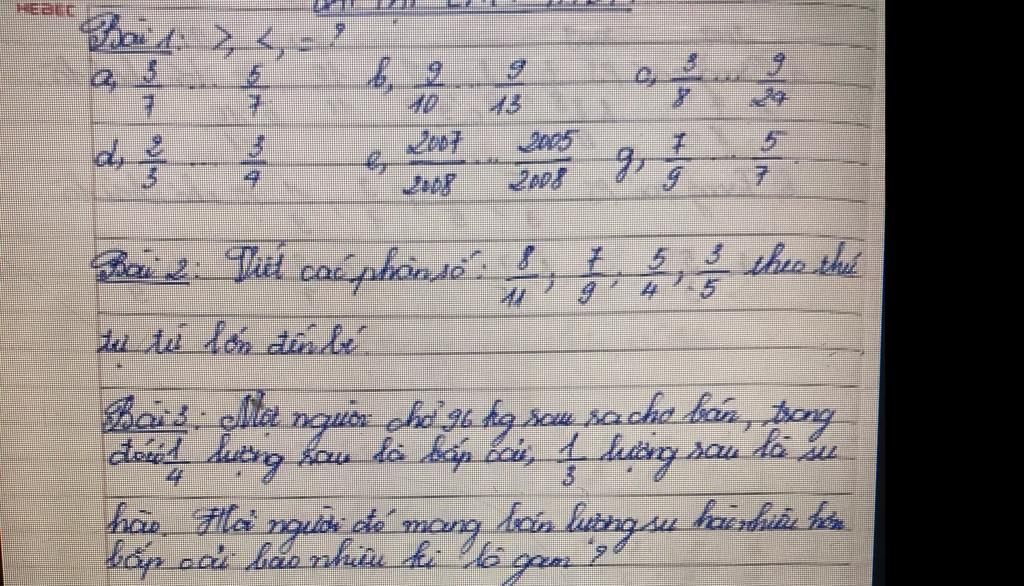 HEBEC
Bài 1: >, <, = ?
a, 3/7 ... 5/7 b, 9/10 ... 9/13 c, 3/8 ... 9/24
d, 2/3 ... 3/4 e, 2007/2008 ... 2005/2008 g, 7/9 ... 5/7
Bài 2: Viết các phân số: 8/11, 7/9, 5/4, 3/5 theo thứ
tự từ lớn đến bé.
Bài 3: Một người chở 96 kg rau ra chợ bán, trong
đó có 1/4 lượng rau là bắp cải, 1/3 lượng rau là su
hào. Hỏi người đó mang bán lượng su hào nhiều hơn
bắp cải bao nhiêu ki lô gam ?